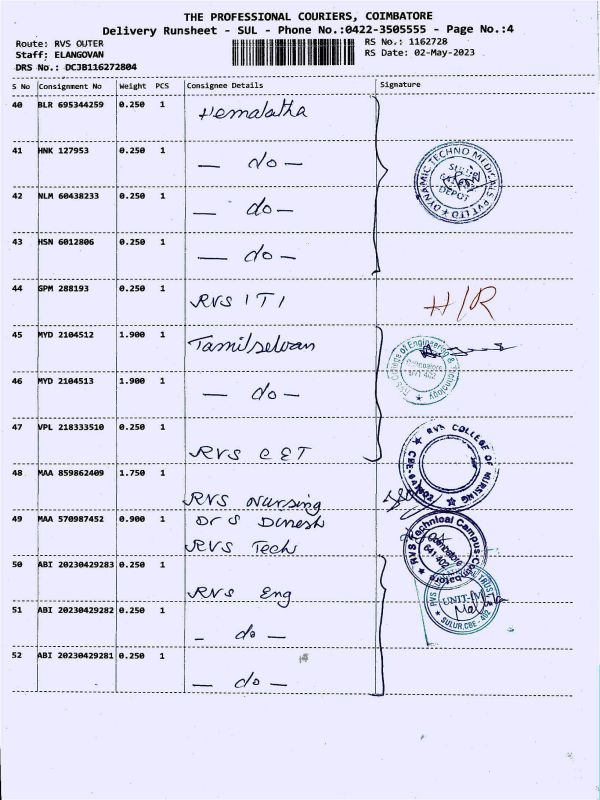 THE PROFESSIONAL COURIERS, COIMBATORE
Delivery Runsheet - SUL - Phone No.:0422-3505555 - Page No.:4
Route: RVS OUTER
RS No.: 1162728
Staff: ELANGOVAN
RS Date: 02-May-2023
DRS No.: DCJB116272804
S No Consignment No Weight PCS Consignee Details Signature
40 BLR 695344259 0.250 1 Hemalatha
41 HNK 127953 0.250 1 — do —
DYNAMIC TECHNO MEDICALS PVT LTD
DEPOT
42 NLM 60438233 0.250 1 — do —
43 HSN 6012806 0.250 1 — do —
44 SPM 288193 0.250 1 RVS ITI H/R
45 MYD 2104512 1.900 1 Tamilselvan
RVS College of Engineering & Technology
Coimbatore
641 402
46 MYD 2104513 1.900 1 — do —
47 VPL 218333510 0.250 1 RVS CET
RVS COLLEGE OF NURSING
CBE-641402
48 MAA 859862409 1.750 1 RVS Nursing
49 MAA 570987452 0.900 1 Dr S Dinesh
RVS Tech
RVS Technical Campus-Coimbatore
Coimbatore
641 402
50 ABI 20230429283 0.250 1 RVS Eng
RVS TRUST
UNIT-
SULUR, CBE - 402
51 ABI 20230429282 0.250 1 - do -
52 ABI 20230429281 0.250 1 — do —